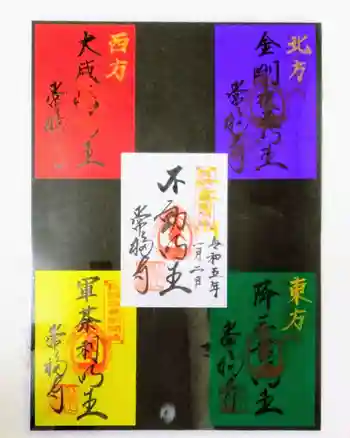 西方
大威徳明王
常福寺
北方
金剛夜叉明王
常福寺
不動明王
常福寺
令和五年
一月二日
軍荼利明王
常福寺
東方
降三世明王
常福寺